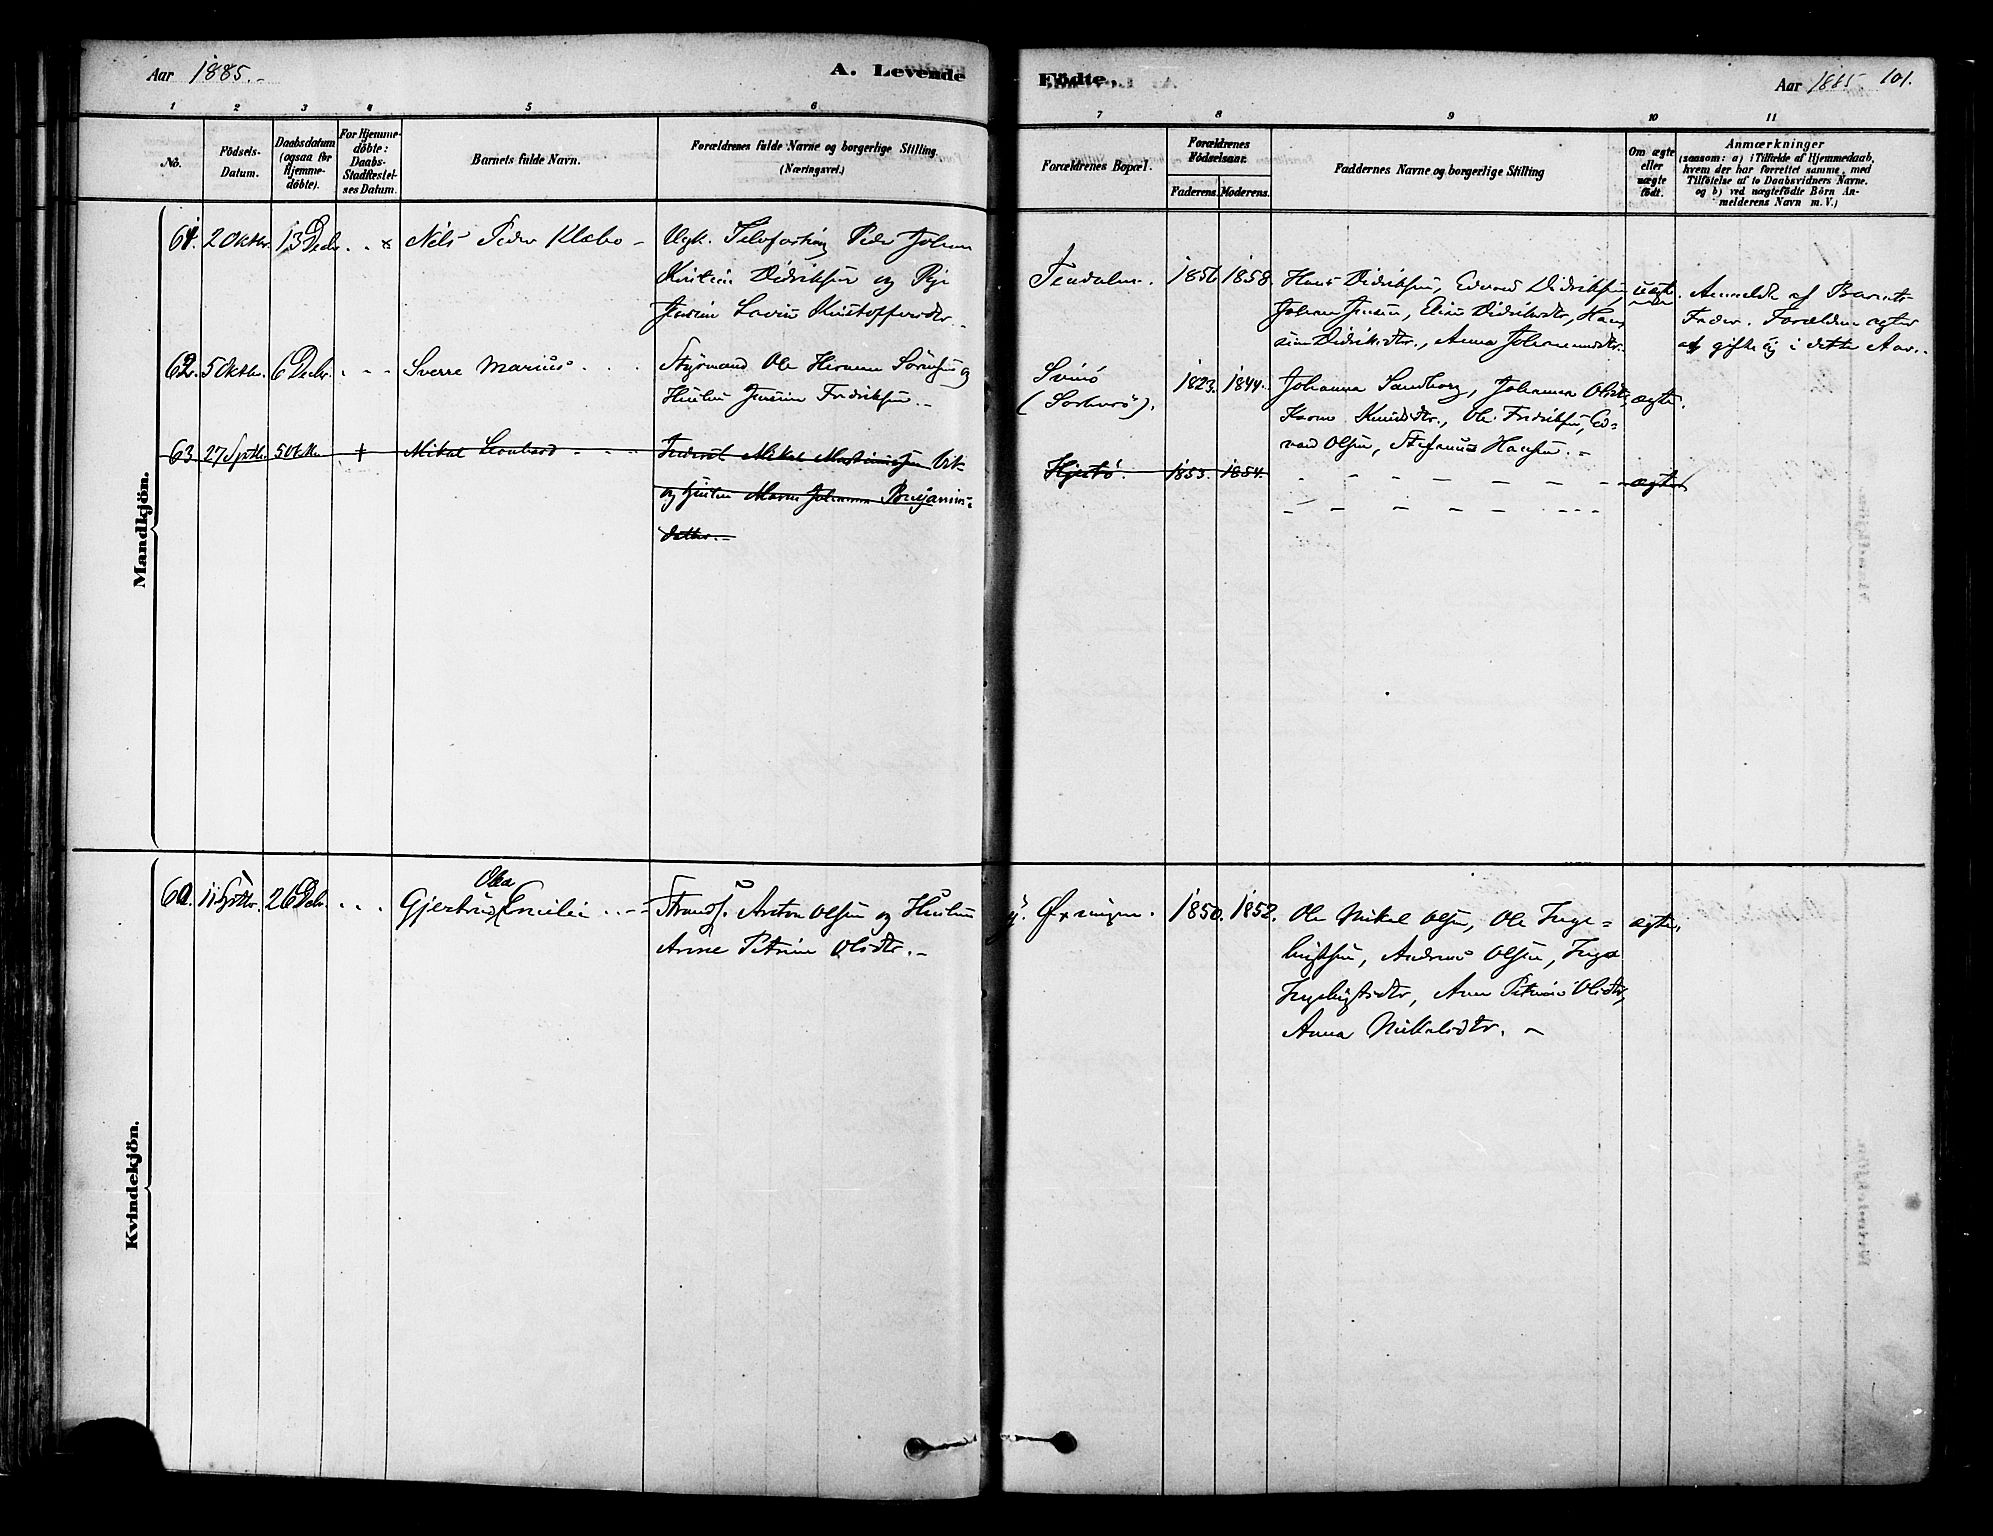 Aar 1885.-
A. Levende
Födte,
Aar 1885. 101.
1 2 3 4 5 6 7 8 9 10 11
No.
Födsels-
Datum.
Daabsdatum
(ogsaa for
Hjemme-
döbte).
For Hjemme-
döbte:
Daabs-
Stadfæstel-
ses Datum.
Barnets fulde Navn.
Forældrenes fulde Navne og borgerlige Stilling
(Næringsvei.)
Forældrenes Bopæl.
Forældrenes
Födselsaar.
Faderens. Moderens.
Faddernes Navne og borgerlige Stilling
Om ægte
eller
uægte
födt.
Anmærkninger
(saasom: a) i Tilfælde af Hjemmedaab,
hvem der har forrettet samme, med
Tilföielse af to Daabsvidners Navne.
og b) ved uægtefödte Börn An-
melderens Navn m. V.)
Mandkjön.
61. 2 Oktbr. 13 Decbr. Nils Peder Klæbo - Ugk. Peder Johan
Didriksen og Pige
Lovise Kristoffersdtr.
1856 1858. Hans Didriksen, Edvard Didriksen,
Johan Jensen, Didriksdtr., Han
sine Didriksdtr., Anna Johannesdtr.
uægte
Anmeldt af Barnets
Fader. Forældrene agter
at gifte sig i dette Aar.
62. 5 Oktbr. 6 Decbr. Sverre Marius Styrmand Ole Herman Sörensen og
Hustru Fredriksen.
Svinö
1823. 1844. Johanna Sandberg, Johanna Olsdtr,
Karen Knudsdtr., Ole Fredriksen, Ed-
vard Olsen, Hansen.
ægte.
63. 27 Septbr. 5 Oktbr + Mikal Leonhard Mikal
og Hustru Maren Johanna Benjamins-
datter.-
Hjertö. 1853. 1854. ægte
Kvindekjön.
60. 11 Septbr. 26 Decbr.
Olea
Gjertrud Emilie Strands. Anton Olsen og Hustru
Anne Petrine Olsdtr.-
Öxningen. 1850. 1852. Ole Mikal Olsen, Ole Inge-
brigtsen, Andreas Olsen, Inga
Ingebrigtsdtr, Ane Olsdtr,
Anna Mikalsdtr. -
ægte.